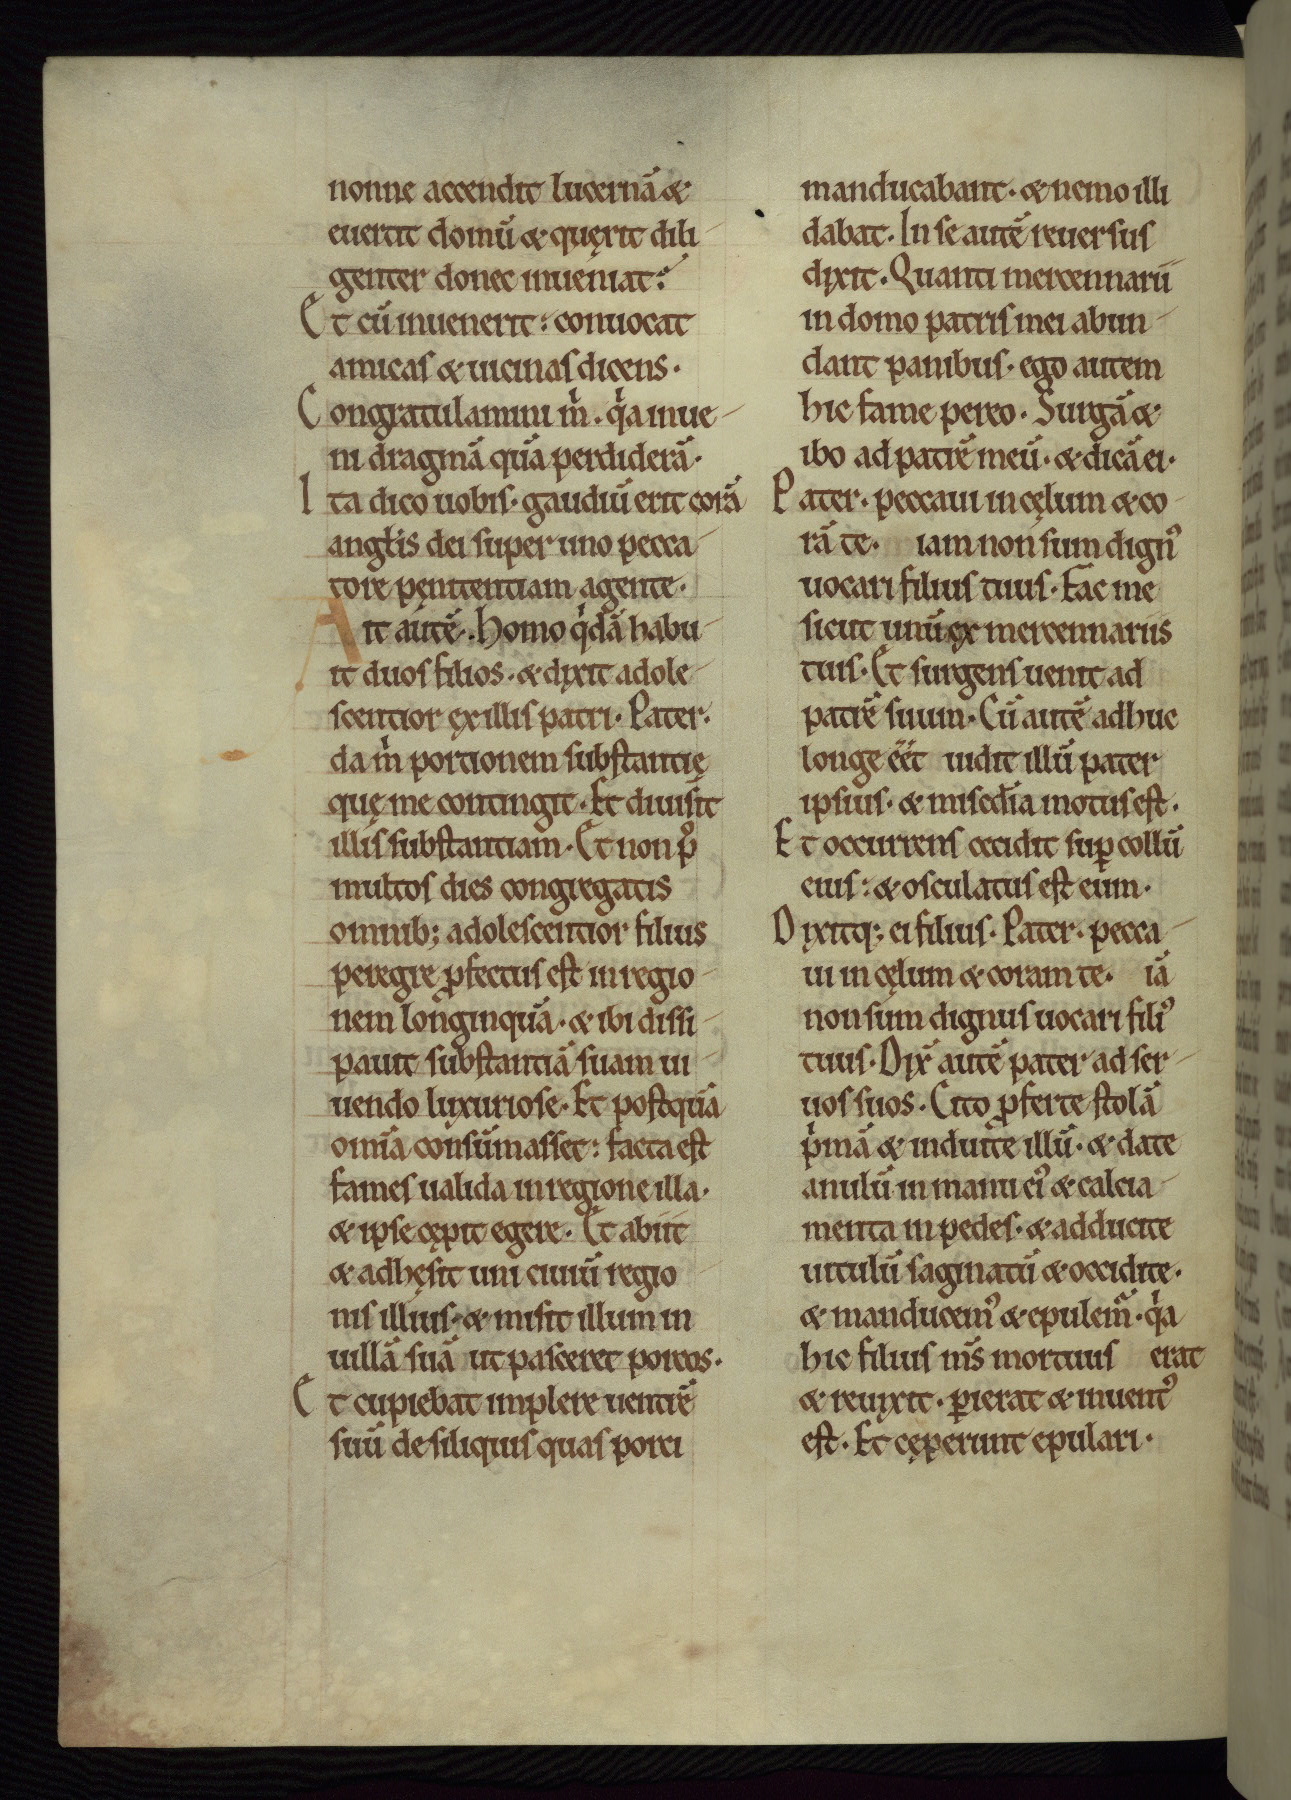 nonne accendit lucernā &
euertit domū & quęrit dili
genter donec inueniat?
Et cū inuenerit: conuocat
amicas & uicinas dicens.
Congratulamini m̍. q̍a inue
ni dragmā quā perdiderā.
Ita dico uobis. gaudiū erit corā
angłis dei super uno pecca
tore pęnitentiam agente.
Ait autē. Homo q̍dā habu
it duos filios. & dixit adole
scentior ex illis patri. Pater.
da m̍ portionem substantię
quę me contingit. Et diuisit
illis substantiam. Et non p᷒
multos dies congregatis
omnib; adolescentior filius
peregre ꝓfectus est in regio
nem longinquā. & ibi dissi
pauit substantiā suam ui
uendo luxuriose. Et postquā
om̄ia consūmasset: facta est
fames ualida in regione illa.
& ipse cępit egere. Et abiit
& adhęsit uni ciuiū regio
nis illius. & misit illum in
uillā suā ut pasceret porcos.
Et cupiebat implere uentrē
suū de siliquis quas porci
manducabant. & nemo illi
dabat. In se autē reuersus
dixit. Quanti mercennarii
in domo patris mei abun
dant panibus. ego autem
hic fame pereo. Surgā &
ibo ad patrē meū. & dicā ei.
Pater. peccaui in cęlum & co
rā te. iam non sum dign᷒
uocari filius tuus. Fac me
sicut unū ex mercennariis
tuis. Et surgens uenit ad
patrē suum. Cū autē adhuc
longe eēt uidit illū pater
ipsius. & misedia motus est.
Et occurrens cecidit suꝑ collū
eius: & osculatus est eum.
Dixitq; ei filius. Pater. pecca
ui in cęlum & coram te. iā
non sum dignus uocari fili᷒
tuus. Dix̄ autē pater ad ser
uos suos. Cito ꝓferte stolā
p̍mā & induite illū. & date
anulū in manu ei᷒ & calcia
menta in pedes. & adducite
uitulū saginatū & occidite.
& manducem᷒ & epulemᷓ. q̍a
hic filius m̄s mortuus erat
& reuixit. ꝑierat & inuent᷒
est. Et cęperunt epulari.